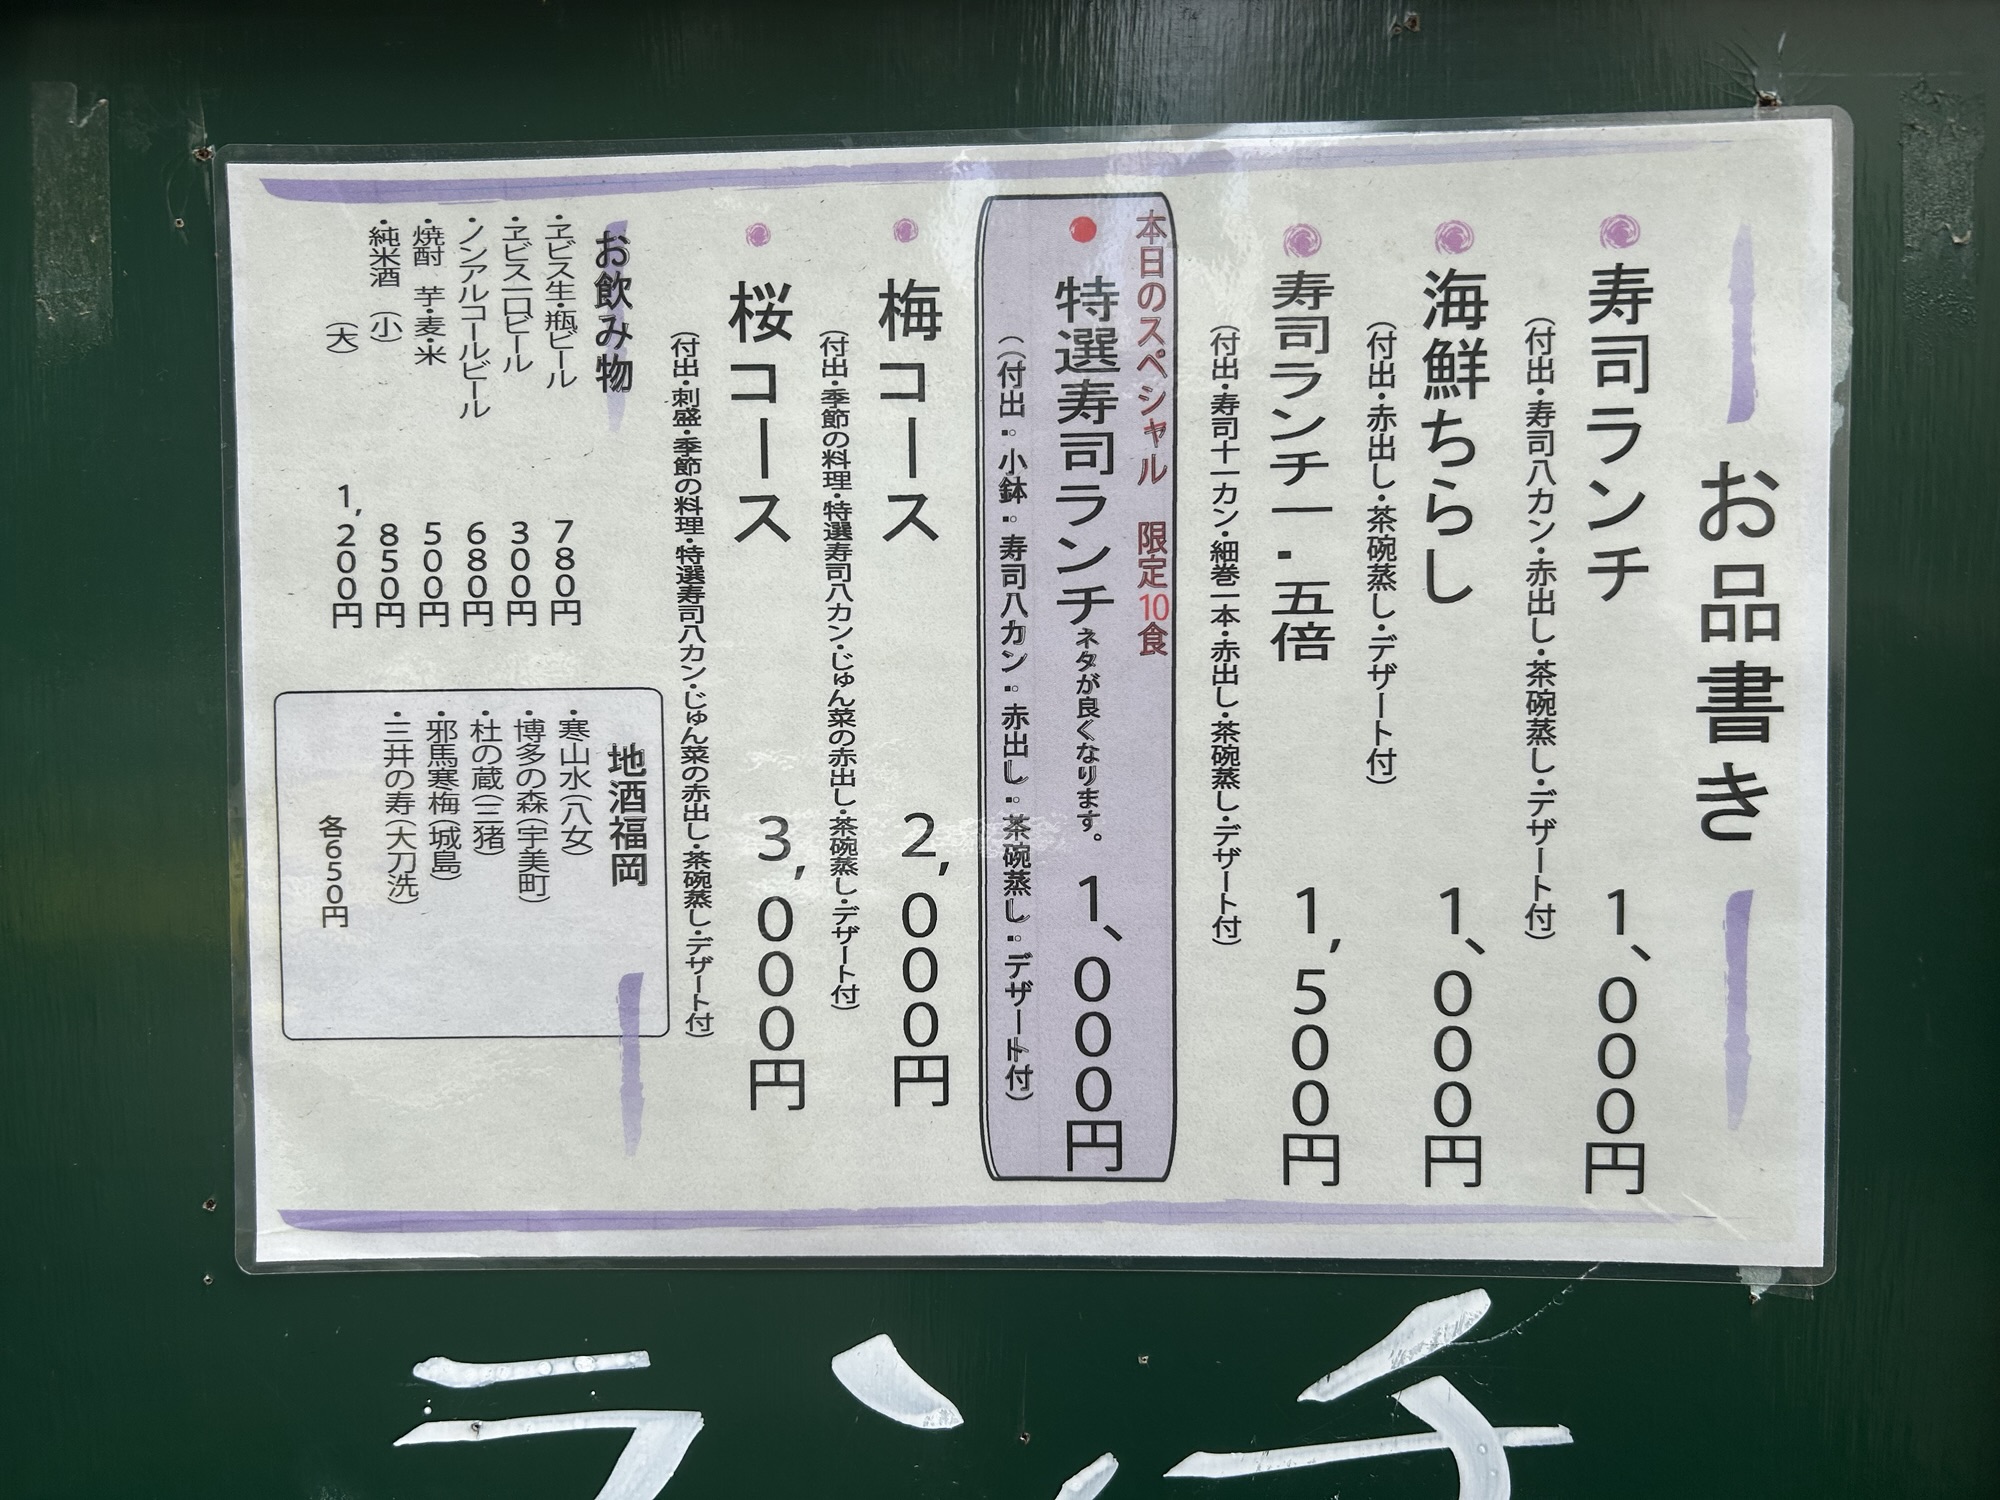 お品書き
寿司ランチ 1、000円
(付出・寿司八カン・赤出し・茶碗蒸し・デザート付)
海鮮ちらし 1、000円
(付出・赤出し・茶碗蒸し・デザート付)
寿司ランチ一・五倍 1,500円
(付出・寿司十一カン・細巻一本・赤出し・茶碗蒸し・デザート付)
本日のスペシャル 限定10食
特選寿司ランチ ネタが良くなります。 1、000円
((付出・小鉢・寿司八カン・赤出し・茶碗蒸し・デザート付)
梅コース 2,000円
(付出・季節の料理・特選寿司八カン・じゅん菜の赤出し・茶碗蒸し・デザート付)
桜コース 3,000円
(付出・刺盛・季節の料理・特選寿司八カン・じゅん菜の赤出し・茶碗蒸し・デザート付)
お飲み物
・ヱビス生・瓶ビール 780円
・ヱビス一口ビール 300円
・ノンアルコールビール 680円
・焼酎 芋・麦・米 500円
・純米酒 (小) 850円
(大) 1,200円
地酒福岡
・寒山水(八女)
・博多の森(宇美町)
・杜の蔵(三猪)
・邪馬寒梅(城島)
・三井の寿(大刀洗)
各650円
ランチ